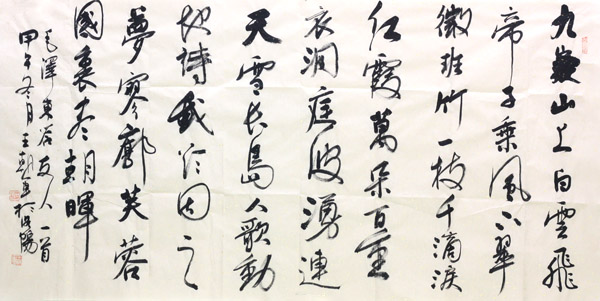 九嶷山上白雲飛
帝子乘風下翠
微班竹一枝千滴淚
红霞萬朵百重
衣洞庭波湧連
天雪长島人歌動
地詩我欲因之
夢寥廓芙蓉
國裏盡朝暉
毛澤東答友人一首
甲午冬月王朝於洛陽